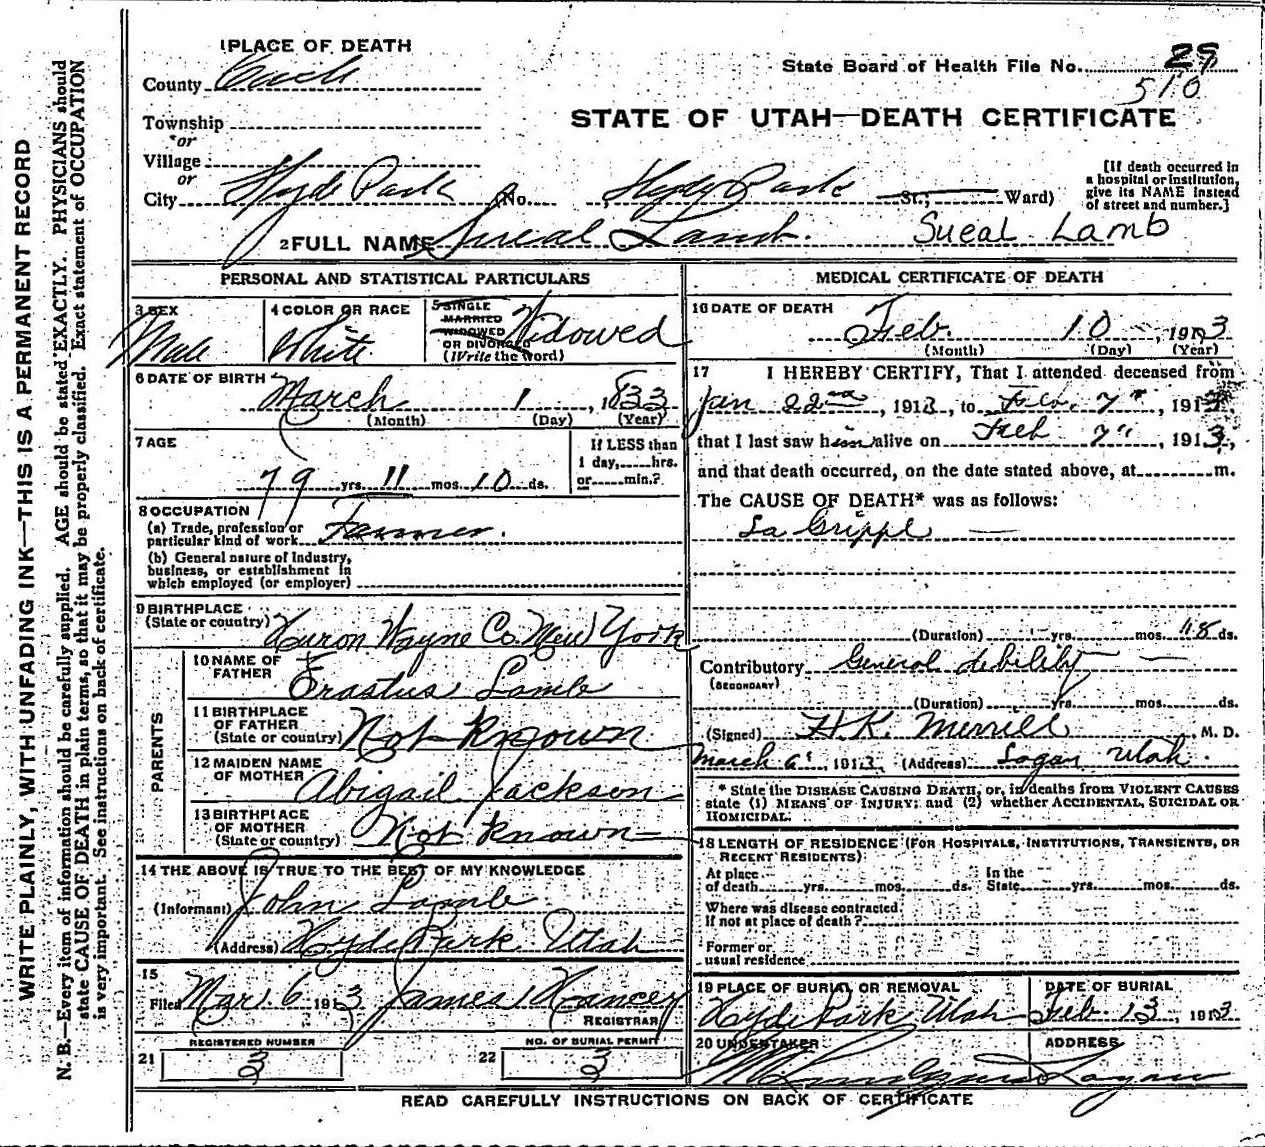 WRITE PLAINLY, WITH UNFADING INK—THIS IS A PERMANENT RECORD
N. B.—Every item of information should be carefully supplied. AGE should be stated EXACTLY. PHYSICIANS should
state CAUSE OF DEATH in plain terms, so that it may be properly classified. Exact statement of OCCUPATION
is very important. See instructions on back of certificate.
1 PLACE OF DEATH
County
State Board of Health File No. 29
510
STATE OF UTAH—DEATH CERTIFICATE
Township
or
Village
or
City Hyde Park No. Hyde Park St.; Ward)
[If death occurred in
a hospital or institution,
give its NAME instead
of street and number.]
2 FULL NAME Sueal Lamb. Sueal Lamb
PERSONAL AND STATISTICAL PARTICULARS
3 SEX
Male
4 COLOR OR RACE
White
5 SINGLE
MARRIED
WIDOWED
OR DIVORCED
(Write the word)
Widowed
6 DATE OF BIRTH
March 1, 1833
(Month) (Day) (Year)
7 AGE
79 yrs. 11 mos. 10 ds.
If LESS than
1 day, hrs.
or min.?
8 OCCUPATION
(a) Trade, profession or
particular kind of work Farmer.
(b) General nature of industry,
business, or establishment in
which employed (or employer)
9 BIRTHPLACE
(State or country) Huron Wayne Co. New York
PARENTS
10 NAME OF
FATHER Erastus Lamb
11 BIRTHPLACE
OF FATHER
(State or country) Not Known
12 MAIDEN NAME
OF MOTHER Abigail Jackson
13 BIRTHPLACE
OF MOTHER
(State or country) Not Known
14 THE ABOVE IS TRUE TO THE BEST OF MY KNOWLEDGE
(Informant) John Lamb
(Address) Hyde Park Utah
15
Filed Mar. 6 1913 James Hancey
REGISTRAR
REGISTERED NUMBER
21 3
NO. OF BURIAL PERMIT
22 3
MEDICAL CERTIFICATE OF DEATH
16 DATE OF DEATH
Feb. 10, 1913
(Month) (Day) (Year)
17 I HEREBY CERTIFY, That I attended deceased from
Jan 22nd, 1913, to Feb. 7", 1913,
that I last saw him alive on Feb 7", 1913,
and that death occurred, on the date stated above, at m.
The CAUSE OF DEATH* was as follows:
La Grippe
(Duration) yrs. mos. 18 ds.
Contributory General debility
(SECONDARY)
(Duration) yrs. mos. ds.
(Signed) H.K. Merrill, M. D.
March 6", 1913 (Address) Logan Utah.
* State the DISEASE CAUSING DEATH, or, in deaths from VIOLENT CAUSES
state (1) MEANS OF INJURY; and (2) whether ACCIDENTAL, SUICIDAL OR
HOMICIDAL.
18 LENGTH OF RESIDENCE (FOR HOSPITALS, INSTITUTIONS, TRANSIENTS, OR
RECENT RESIDENTS)
At place
of death yrs. mos. ds. In the
State yrs. mos. ds.
Where was disease contracted
if not at place of death?
Former or
usual residence
19 PLACE OF BURIAL OR REMOVAL
Hyde Park, Utah
DATE OF BURIAL
Feb. 13, 1913
20 UNDERTAKER
ADDRESS
Logan
READ CAREFULLY INSTRUCTIONS ON BACK OF CERTIFICATE